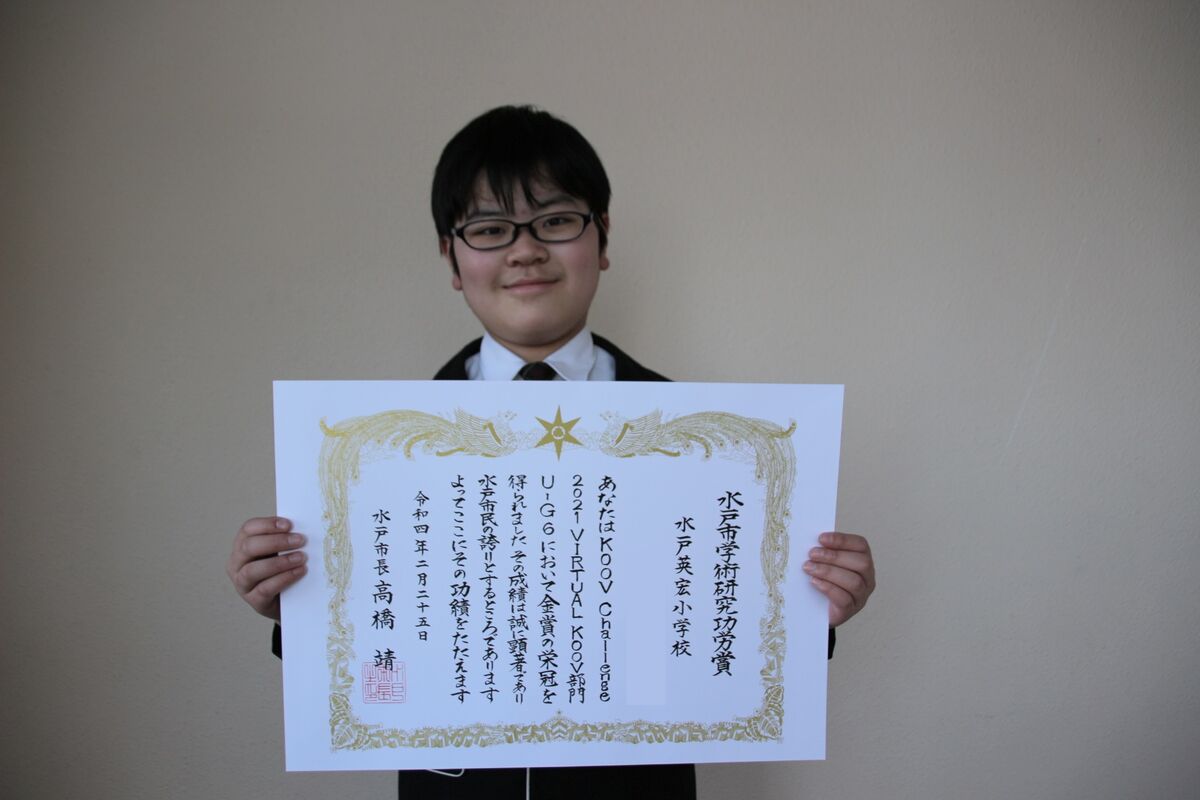 水戸市学術研究功労賞
水戸英宏小学校
あなたはKOOV Challenge
2021 VIRTUAL KOOV部門
U-G6において金賞の栄冠を
得られました その成績は誠に顕著であり
水戸市民の誇りとするところであります
よってここにその功績をたたえます
令和四年二月二十五日
水戸市長 高橋 靖